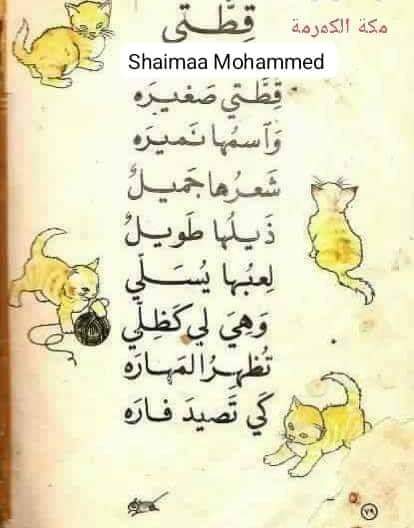 قِطَّتي
مكة الكەرمة
Shaimaa Mohammed
قِطَّتي صَغيرَه
وَٱسمُها نَميرَه
شَعرُها جَميلٌ
ذَيلُها طَويلٌ
لِعبُها يُسَلّي
وَهِيَ لي كَظِلّي
تُظهِرُ المَهارَه
كَي تَصيدَ فارَه
٧٩